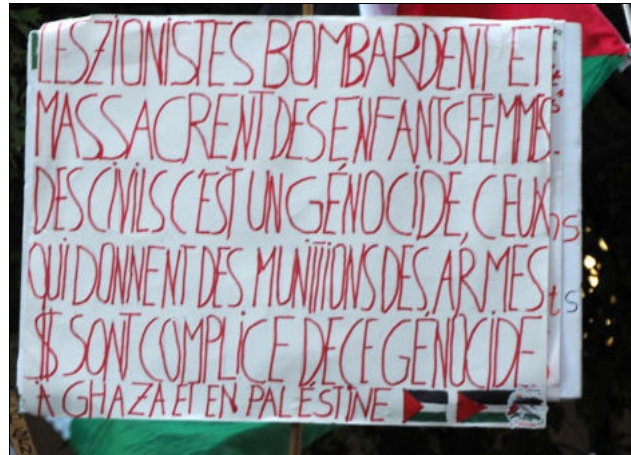 LES ZIONISTES BOMBARDENT ET
MASSACRENT DES ENFANTS FEMMES
DES CIVILS C'EST UN GÉNOCIDE, CEUX
QUI DONNENT DES MUNITIONS DES ARMES
$ SONT COMPLICE DE CE GÉNOCIDE
À GHAZA ET EN PALÉSTINE